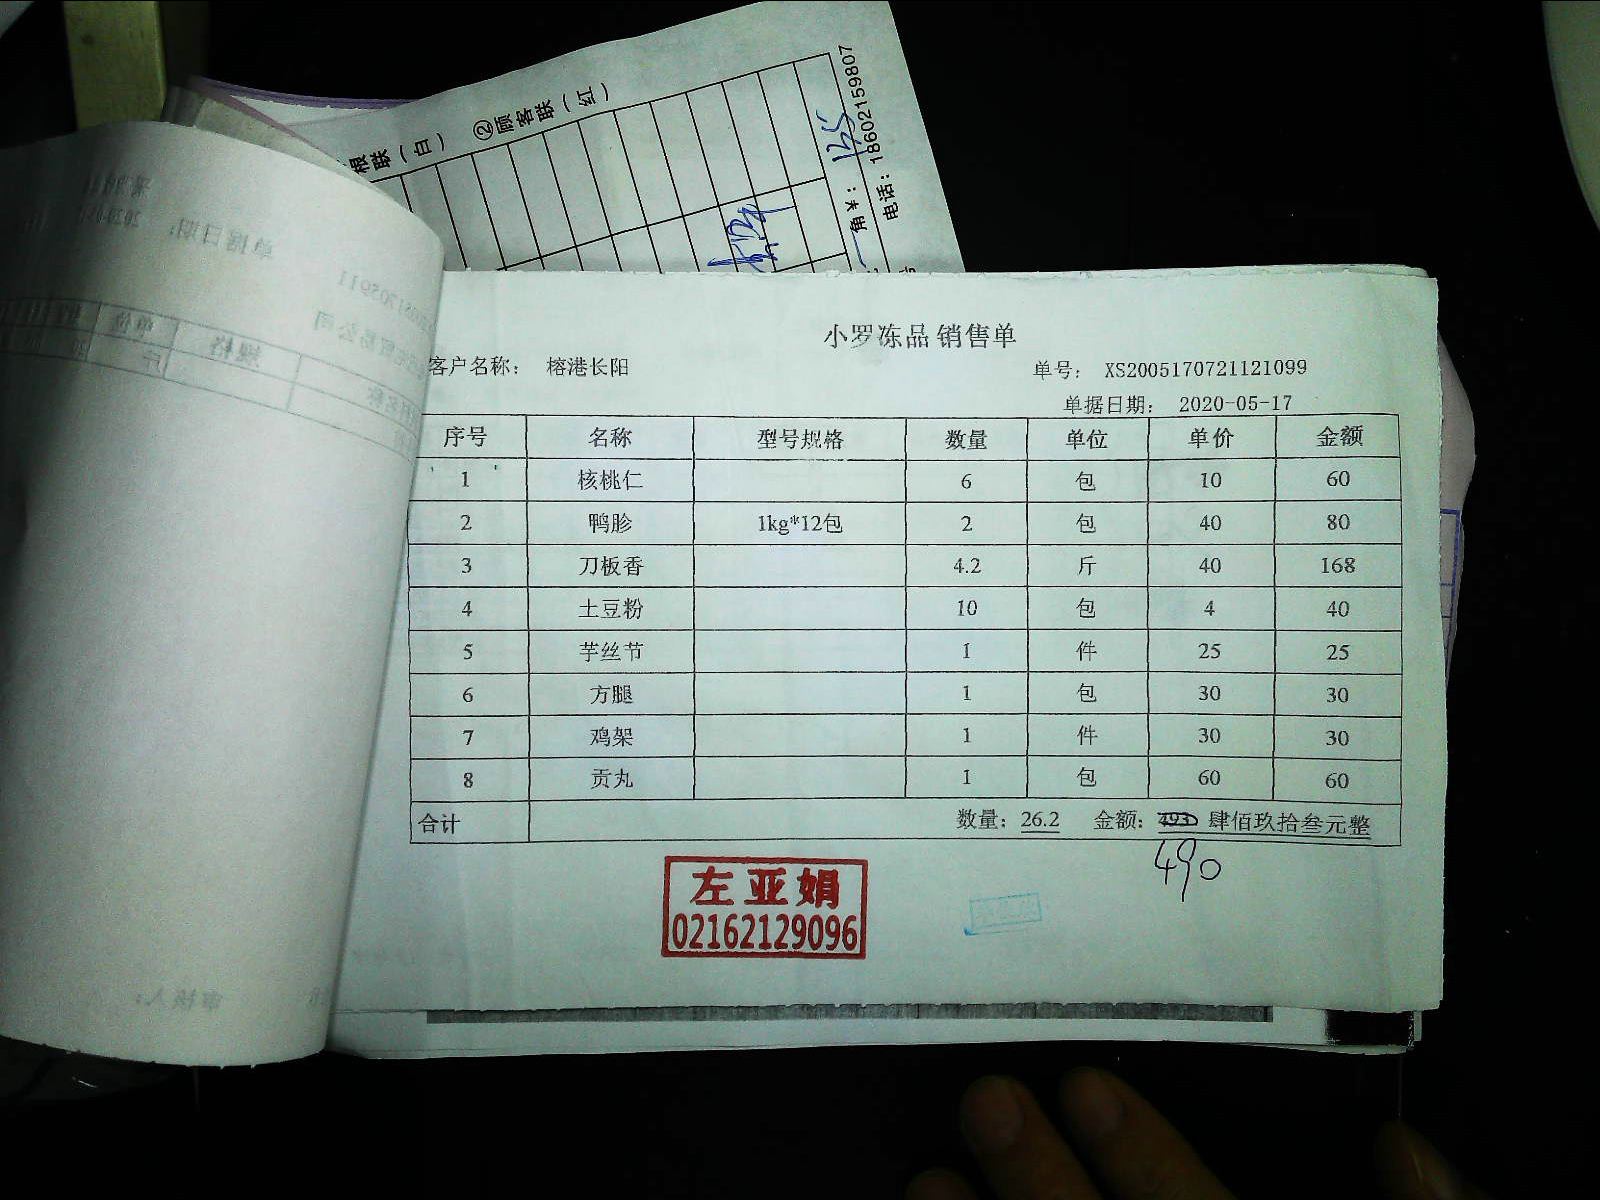 根联（白） ②顾客联（红）
电话：18602159807
单据日期：
小罗冻品 销售单
客户名称： 榕港长阳 单号： XS2005170721121099
单据日期： 2020-05-17
序号 名称 型号规格 数量 单位 单价 金额
1 核桃仁 6 包 10 60
2 鸭胗 1kg*12包 2 包 40 80
3 刀板香 4.2 斤 40 168
4 土豆粉 10 包 4 40
5 芋丝节 1 件 25 25
6 方腿 1 包 30 30
7 鸡架 1 件 30 30
8 贡丸 1 包 60 60
合计 数量：26.2 金额：493 肆佰玖拾叁元整
490
左亚娟
02162129096
审核人：